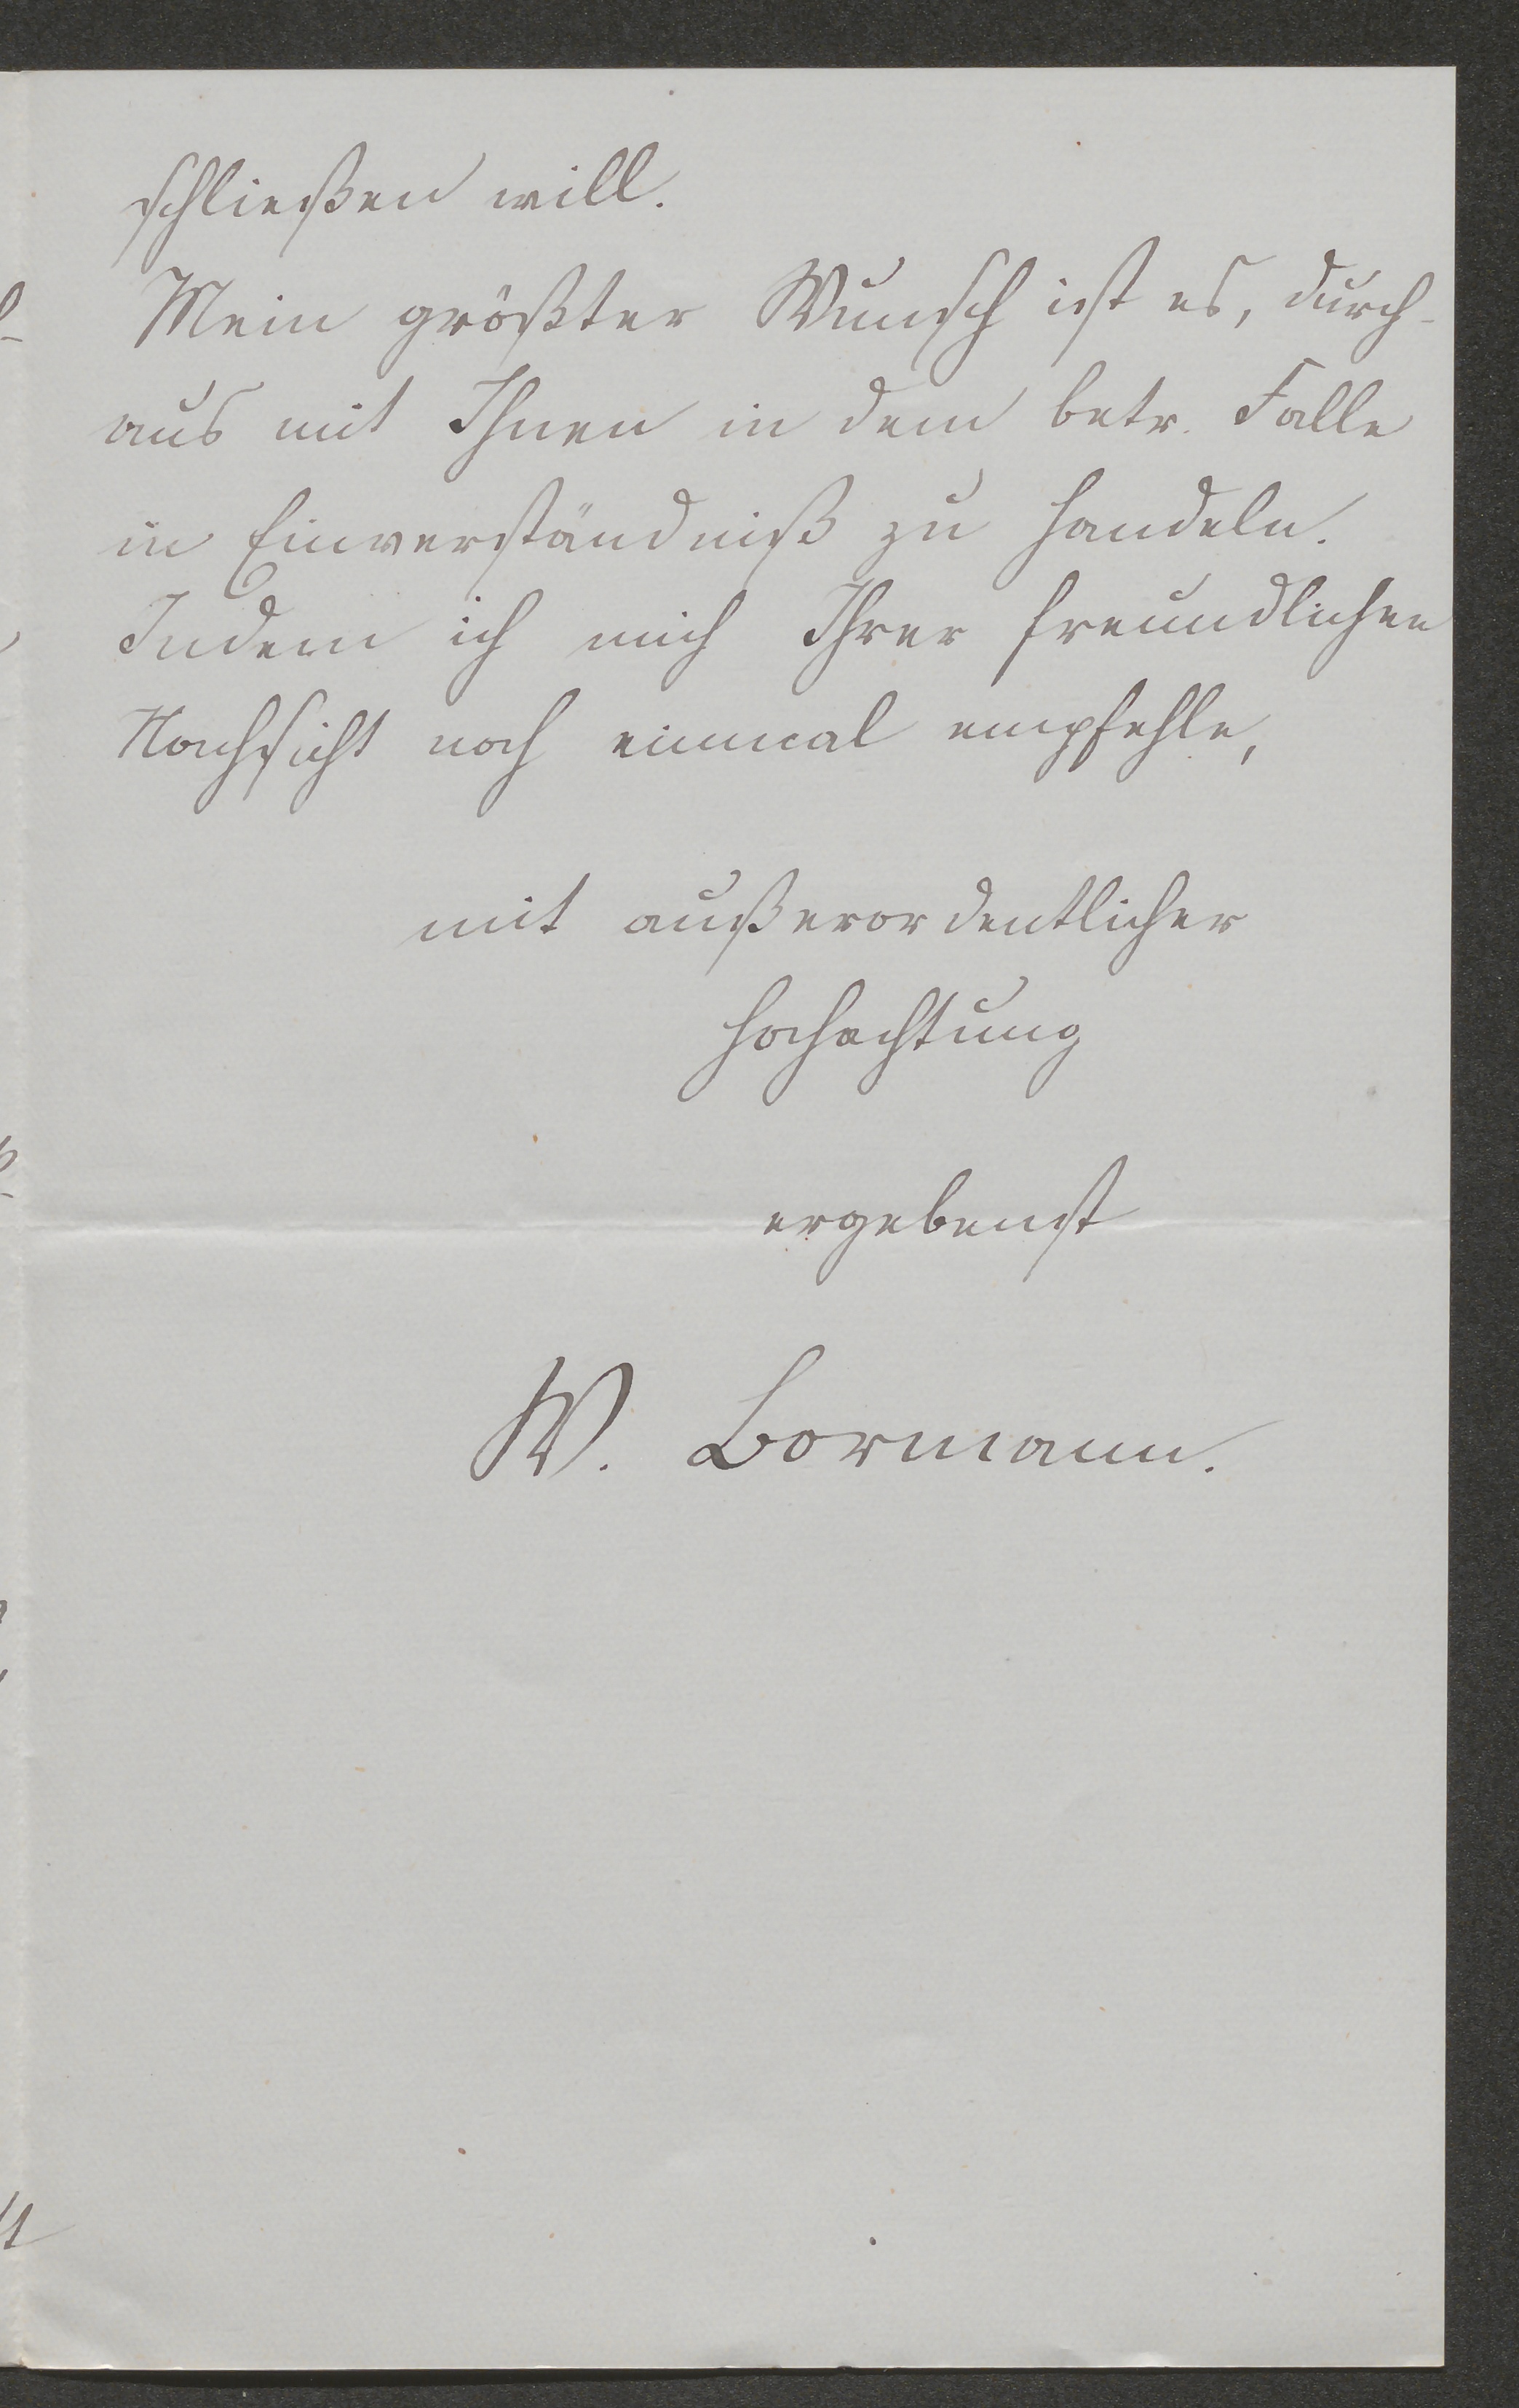 schließen will.
Mein größter Wunsch ist es, durch-
aus mit Ihnen in dem betr. Falle
in Einverständniß zu handeln.
Indem ich mich Ihrer freundlichen
Nachsicht noch einmal empfehle,
mit außerordentlicher
Hochachtung
ergebenst
W. Bormann.